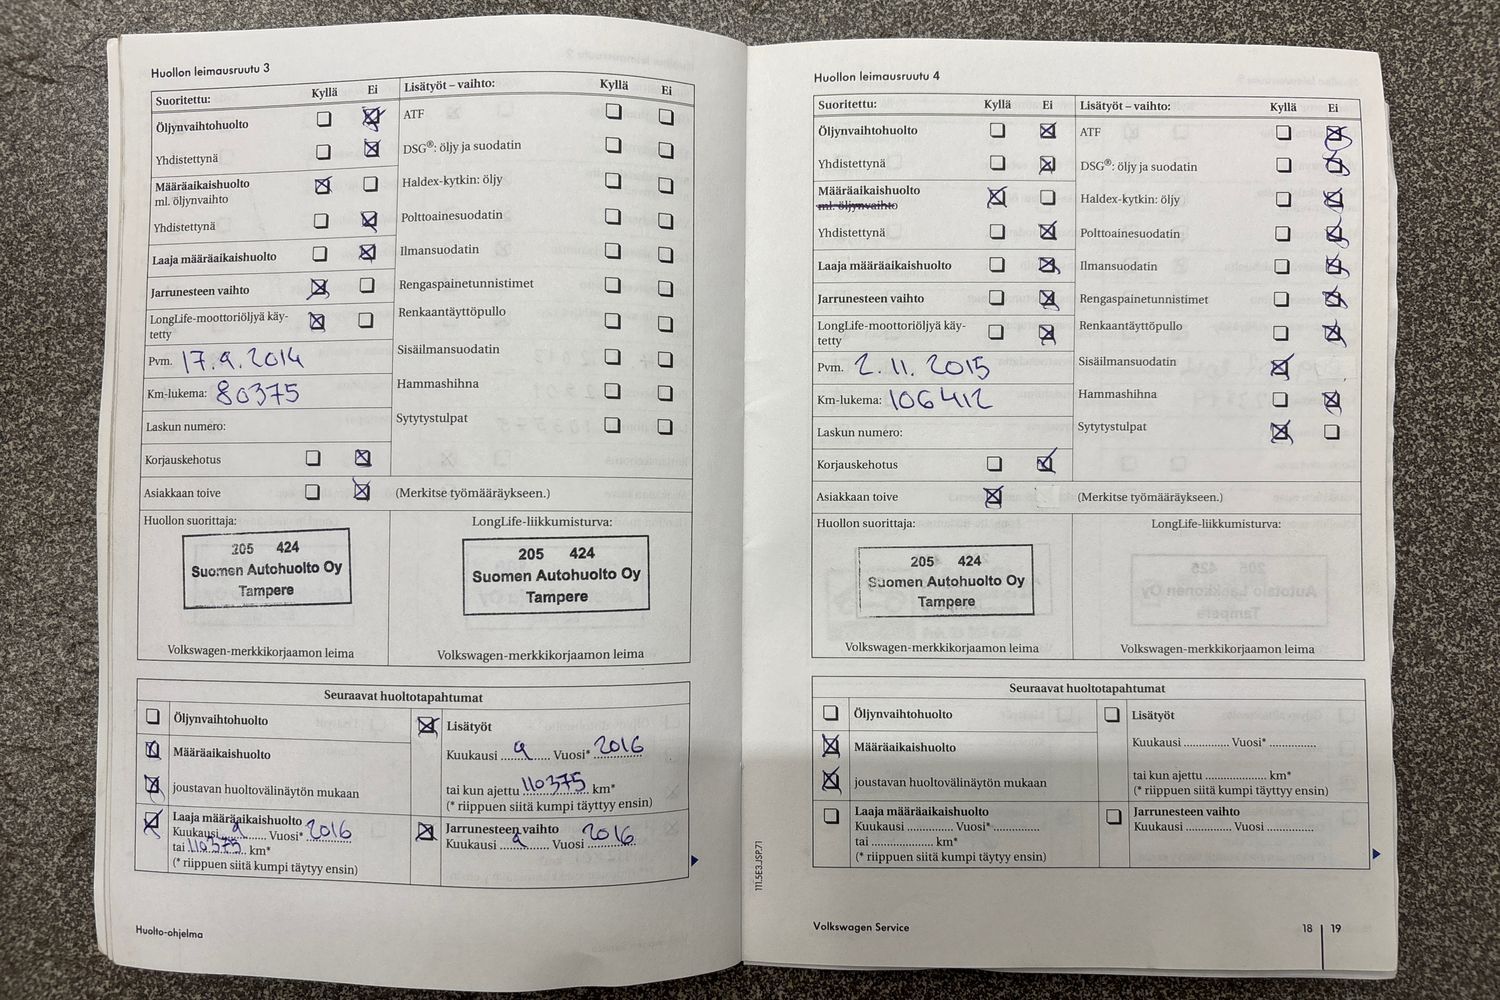 Huollon leimausruutu 3
Suoritettu: Kyllä Ei Lisätyöt – vaihto: Kyllä Ei
Öljynvaihtohuolto ATF
Yhdistettynä DSG®: öljy ja suodatin
Määräaikaishuolto Haldex-kytkin: öljy
ml. öljynvaihto
Yhdistettynä Polttoainesuodatin
Laaja määräaikaishuolto Ilmansuodatin
Jarrunesteen vaihto Rengaspainetunnistimet
LongLife-moottoriöljyä käy- Renkaantäyttöpullo
tetty
Pvm. 17.9.2014 Sisäilmansuodatin
Km-lukema: 80375 Hammashihna
Laskun numero: Sytytystulpat
Korjauskehotus
Asiakkaan toive (Merkitse työmääräykseen.)
Huollon suorittaja: LongLife-liikkumisturva:
205 424 205 424
Suomen Autohuolto Oy Suomen Autohuolto Oy
Tampere Tampere
Volkswagen-merkkikorjaamon leima Volkswagen-merkkikorjaamon leima
Seuraavat huoltotapahtumat
Öljynvaihtohuolto Lisätyöt
Määräaikaishuolto Kuukausi 9 Vuosi* 2016
joustavan huoltovälinäytön mukaan tai kun ajettu 110375 km*
(* riippuen siitä kumpi täyttyy ensin)
Laaja määräaikaishuolto Jarrunesteen vaihto
Kuukausi 9 Vuosi* 2016 Kuukausi 9 Vuosi 2016
tai 110375 km*
(* riippuen siitä kumpi täytyy ensin)
Huolto-ohjelma
Huollon leimausruutu 4
Suoritettu: Kyllä Ei Lisätyöt – vaihto: Kyllä Ei
Öljynvaihtohuolto ATF
Yhdistettynä DSG®: öljy ja suodatin
Määräaikaishuolto Haldex-kytkin: öljy
ml. öljynvaihto
Yhdistettynä Polttoainesuodatin
Laaja määräaikaishuolto Ilmansuodatin
Jarrunesteen vaihto Rengaspainetunnistimet
LongLife-moottoriöljyä käy- Renkaantäyttöpullo
tetty
Pvm. 2.11.2015 Sisäilmansuodatin
Km-lukema: 106412 Hammashihna
Laskun numero: Sytytystulpat
Korjauskehotus
Asiakkaan toive (Merkitse työmääräykseen.)
Huollon suorittaja: LongLife-liikkumisturva:
205 424
Suomen Autohuolto Oy
Tampere
Volkswagen-merkkikorjaamon leima Volkswagen-merkkikorjaamon leima
Seuraavat huoltotapahtumat
Öljynvaihtohuolto Lisätyöt
Määräaikaishuolto Kuukausi .............. Vuosi* ..............
joustavan huoltovälinäytön mukaan tai kun ajettu .................... km*
(* riippuen siitä kumpi täyttyy ensin)
Laaja määräaikaishuolto Jarrunesteen vaihto
Kuukausi .............. Vuosi* .............. Kuukausi .............. Vuosi ..............
tai .................... km*
(* riippuen siitä kumpi täytyy ensin)
111.5E3.JSP.71
Volkswagen Service 18 19